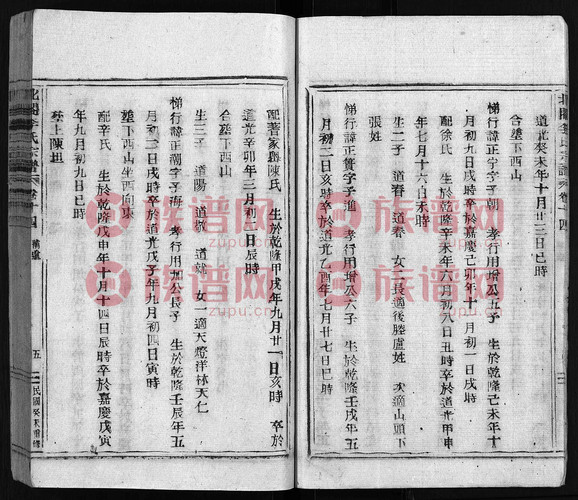 道光癸未年十月廿三日巳時
合塟下西山
悌行諱正宇字子朝 孝行用增公五子 生於乾隆己未年十
月初二日戌時卒於嘉慶己卯年十一月初一日戌時
配徐氏 生於乾隆辛未年六月初八日丑時卒於道光甲申
年七月十六日未時
生二子 道春 道春 女三長適後塍盧姓 次適山頭下
張姓
悌行諱正賓字子進 孝行用增公六子 生於乾隆壬戌年二
月初三日時卒於道光乙酉年七月廿七日巳時
配蒼家磡陳氏 生於乾隆甲戌年九月廿一日亥時 卒於
道光辛卯年三月初三日辰時
合塟下西山
生三子 道陽 道敬 道就 女一適天燈洋林天仁
悌行諱正朝字子海 孝行用加公長子 生於乾隆壬辰年五
月初二日戌時卒於道光戊子年九月初四日寅時
塟下西山坐西向東
配辛氏 生於乾隆戊申年十月十四日辰時卒於嘉慶戊寅
年九月初九日巳時
塟上陳坦
北閣李氏宗譜 卷十四 補遺 五 民國癸未重修
族谱网
zupu.cn